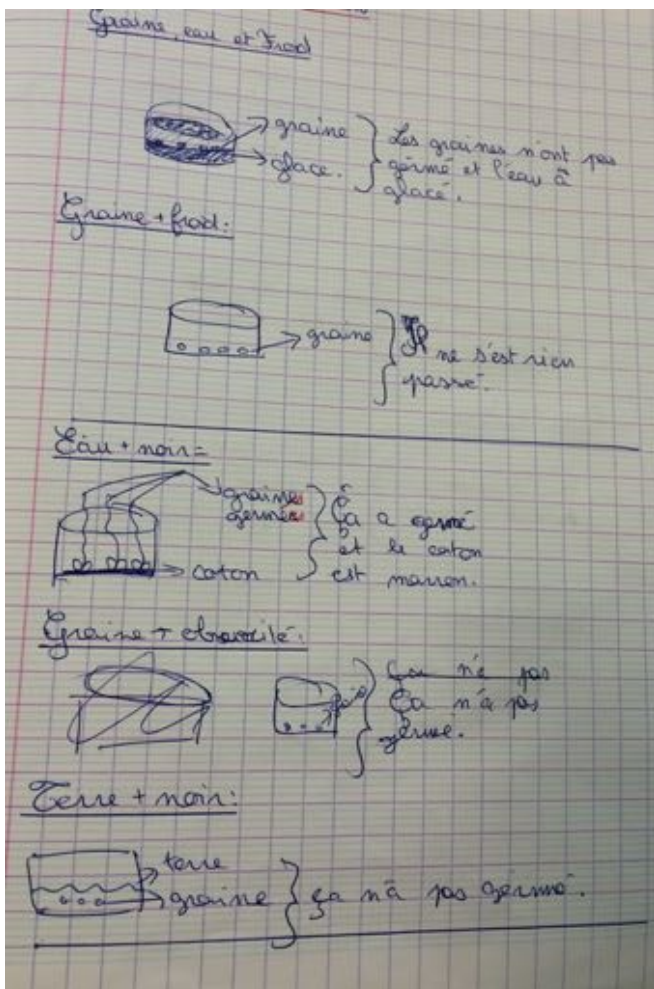 Graine, eau et Froid
graine
glace.
Les graines n'ont pas
germé et l'eau à
glacé.
Graine + froid:
graine
Il
ne s'est rien
passé.
Eau + noir=
graines
germées
coton
Ça a germé
et le coton
est marron.
Graine + obscurité:
Ça n'a pas
Ça n'a pas
germé.
Terre + noir:
terre
graine
ça n'a pas germé.